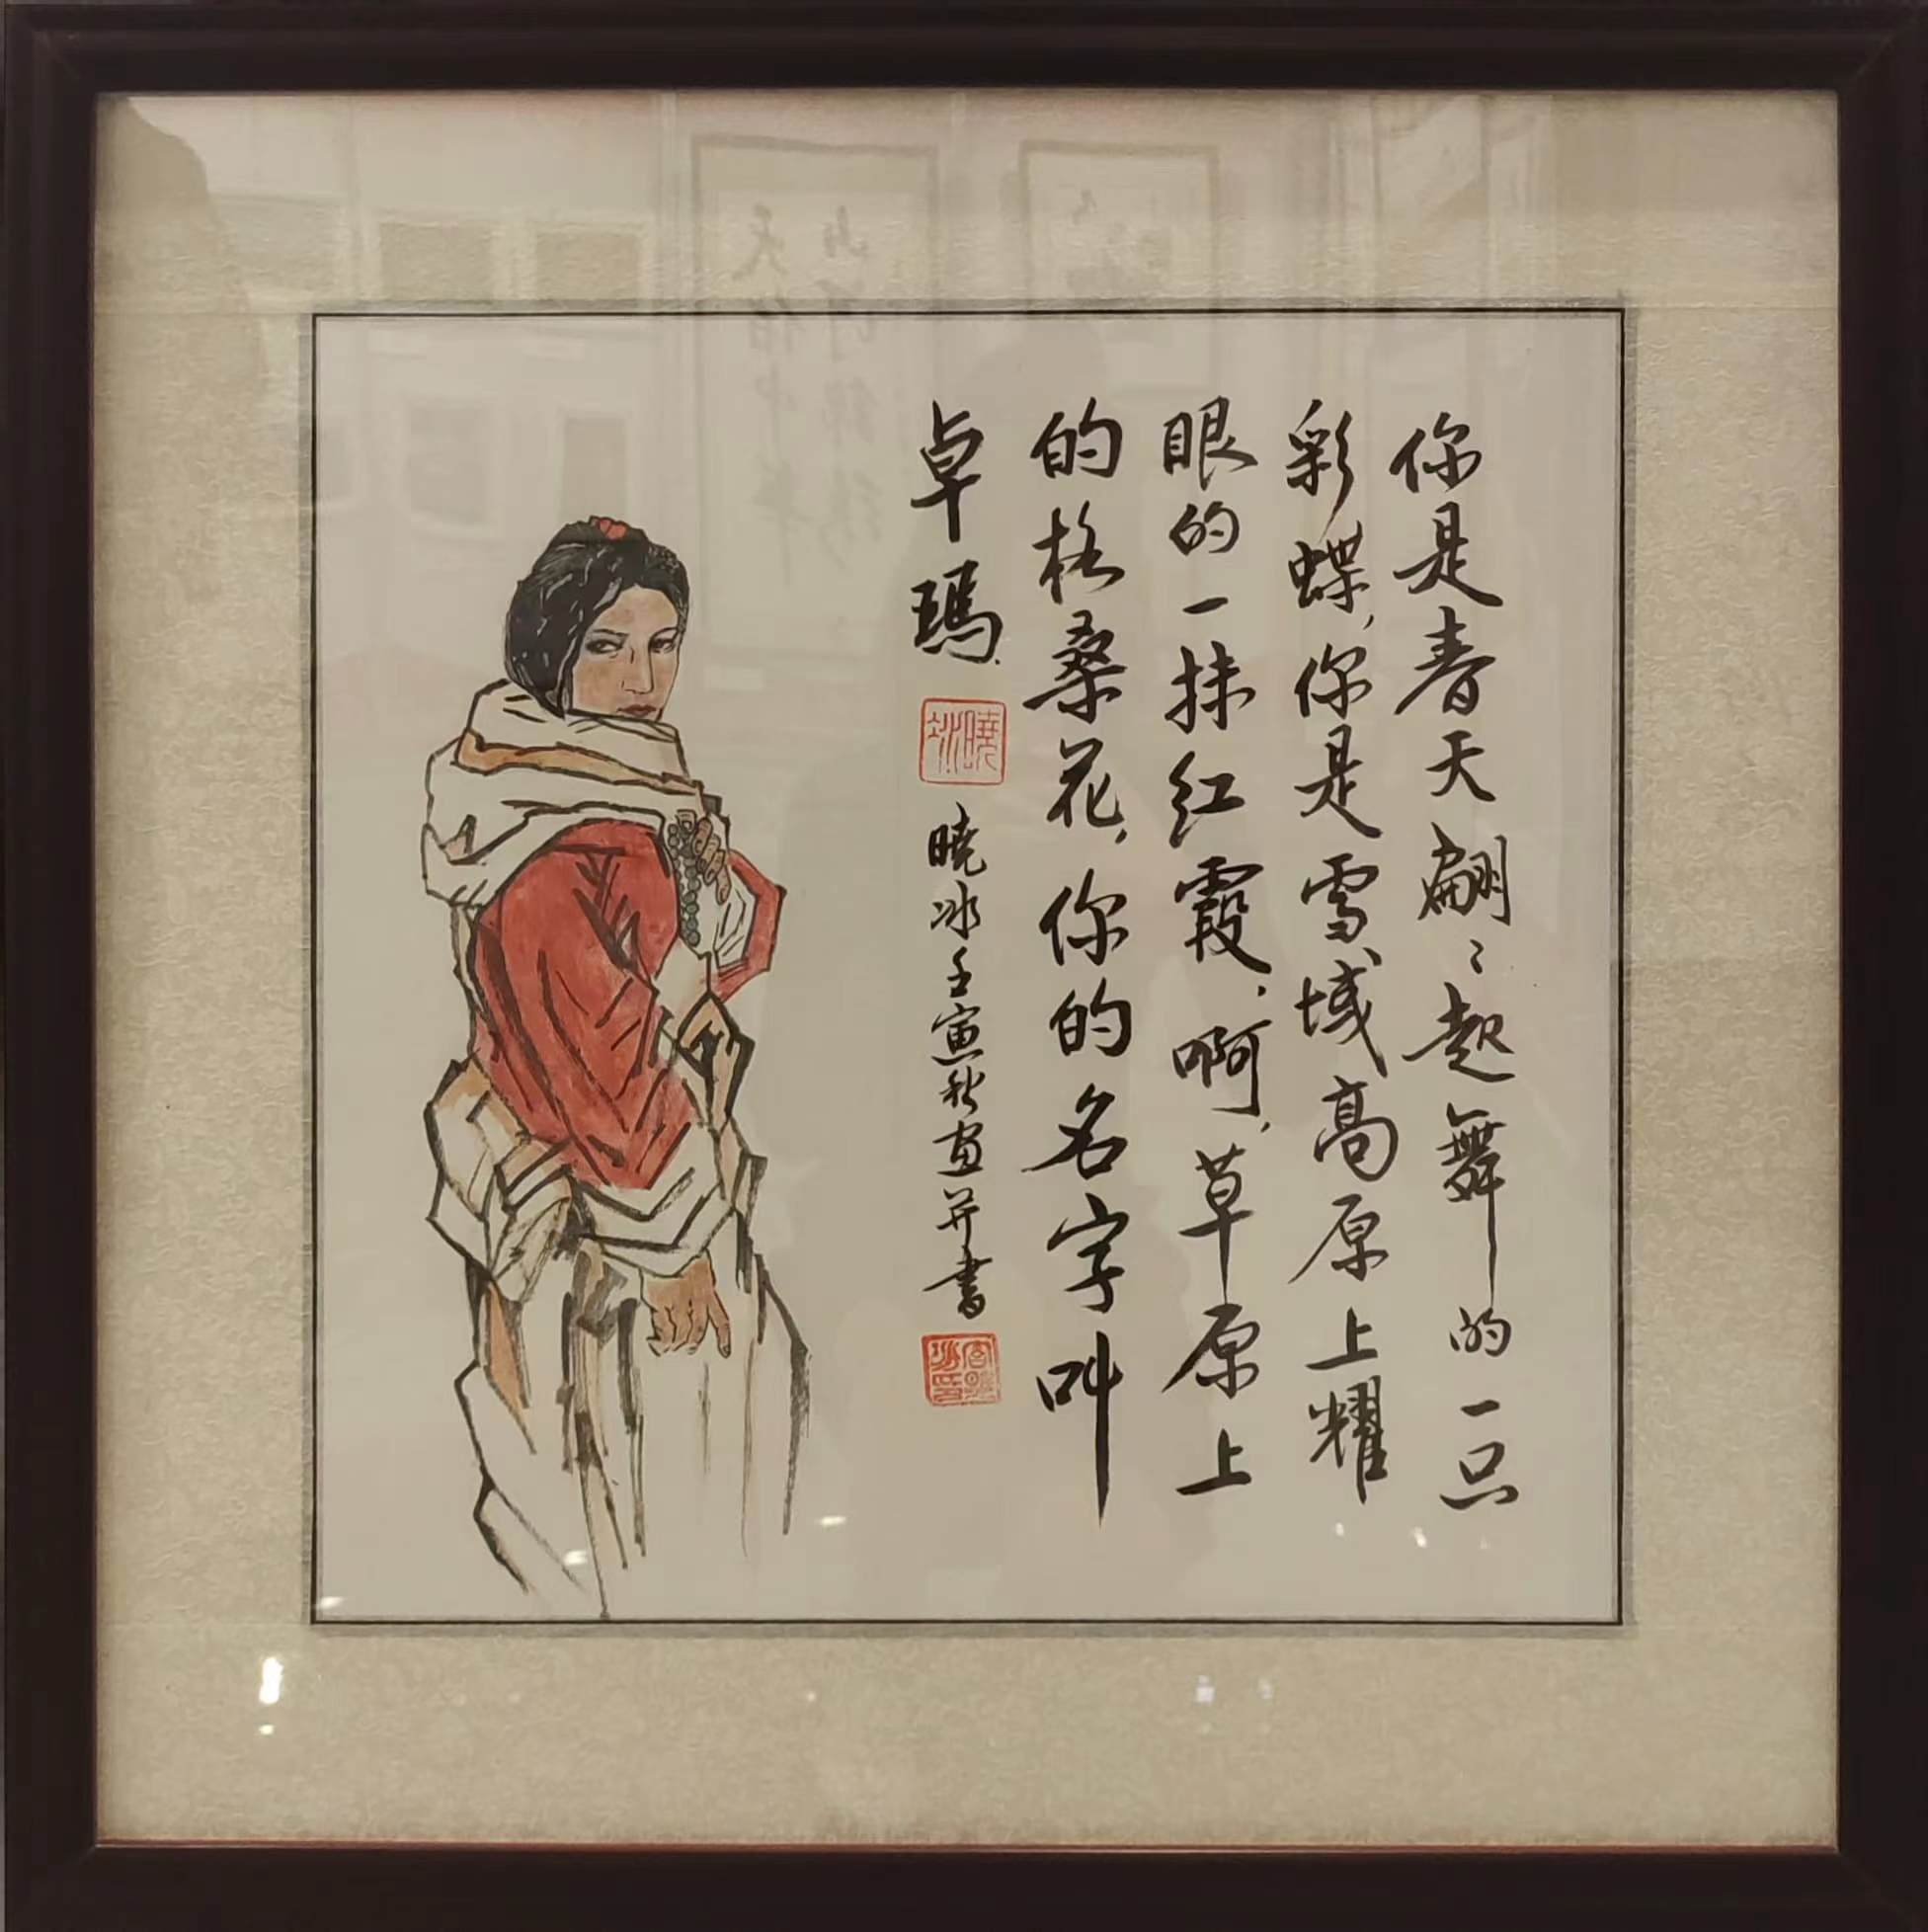 你是春天翩〻起舞的一只
彩蝶，你是雪域高原上耀
眼的一抹红霞，啊，草原上
的格桑花，你的名字叫
卓玛.
曉冰
曉冰壬寅秋画并書